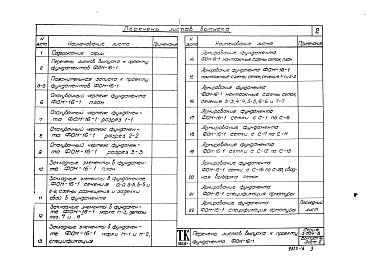 Перечень листов выпуска
2
N листа
Наименование листа
Примечание
1
Содержание серии
2
Перечень листов выпуска к проекту
фундаментов ФОН-16-1
3-5
Пояснительная записка к проекту
фундаментов ФОН-16-1
6
Опалубочный чертеж фундамента
ФОН-16-1 план
7
Опалубочный чертеж фундамен-
та ФОН-16-1 разрез 1-1
8
Опалубочный чертеж фундамен-
та ФОН-16-1 разрез 2-2
9
Опалубочный чертеж фундамента
ФОН-16-1 разрез 3-3
10
Закладные элементы в фундамен-
те ФОН-16-1 план
11
Закладные элементы в фундаменте
ФОН-16-1 сечения
свай в фундаменте
12
Закладные элементы в фундамен-
те ФОН-16-1
13
Закладные элементы в фундамен-
те ФОН-16-1 марки М-1 и М-2,
спецификация
N листа
Наименование листа
Примечание
14
Армирование фундамента
ФОН-16-1 монтажные схемы сеток, план
15
Армирование фундамента ФОН-16-1
монтажные схемы сеток, сечения 1-1 и 2-2
16
Армирование фундамента
ФОН-16-1 монтажные схемы сеток,
сечения 3-3, 4-4, 5-5, 6-6 и 7-7
17
Армирование фундамента
ФОН-16-1 сетки с С-1 по С-6
18
Армирование фундамента
ФОН-16-1 сетки с С-7 по С-11
19
Армирование фундамента
ФОН-16-1 сетки с С-12 по С-15
20
Армирование фундамента
21
Армирование фундамента
ФОН-16-1 спецификация арматуры
22
Армирование фундамента
ФОН-16-1 спецификация арматуры
Последний
лист
ТК
Перечень листов выпуска к проекту
фундамента ФОН-16-1
Серия
Лист 2
3